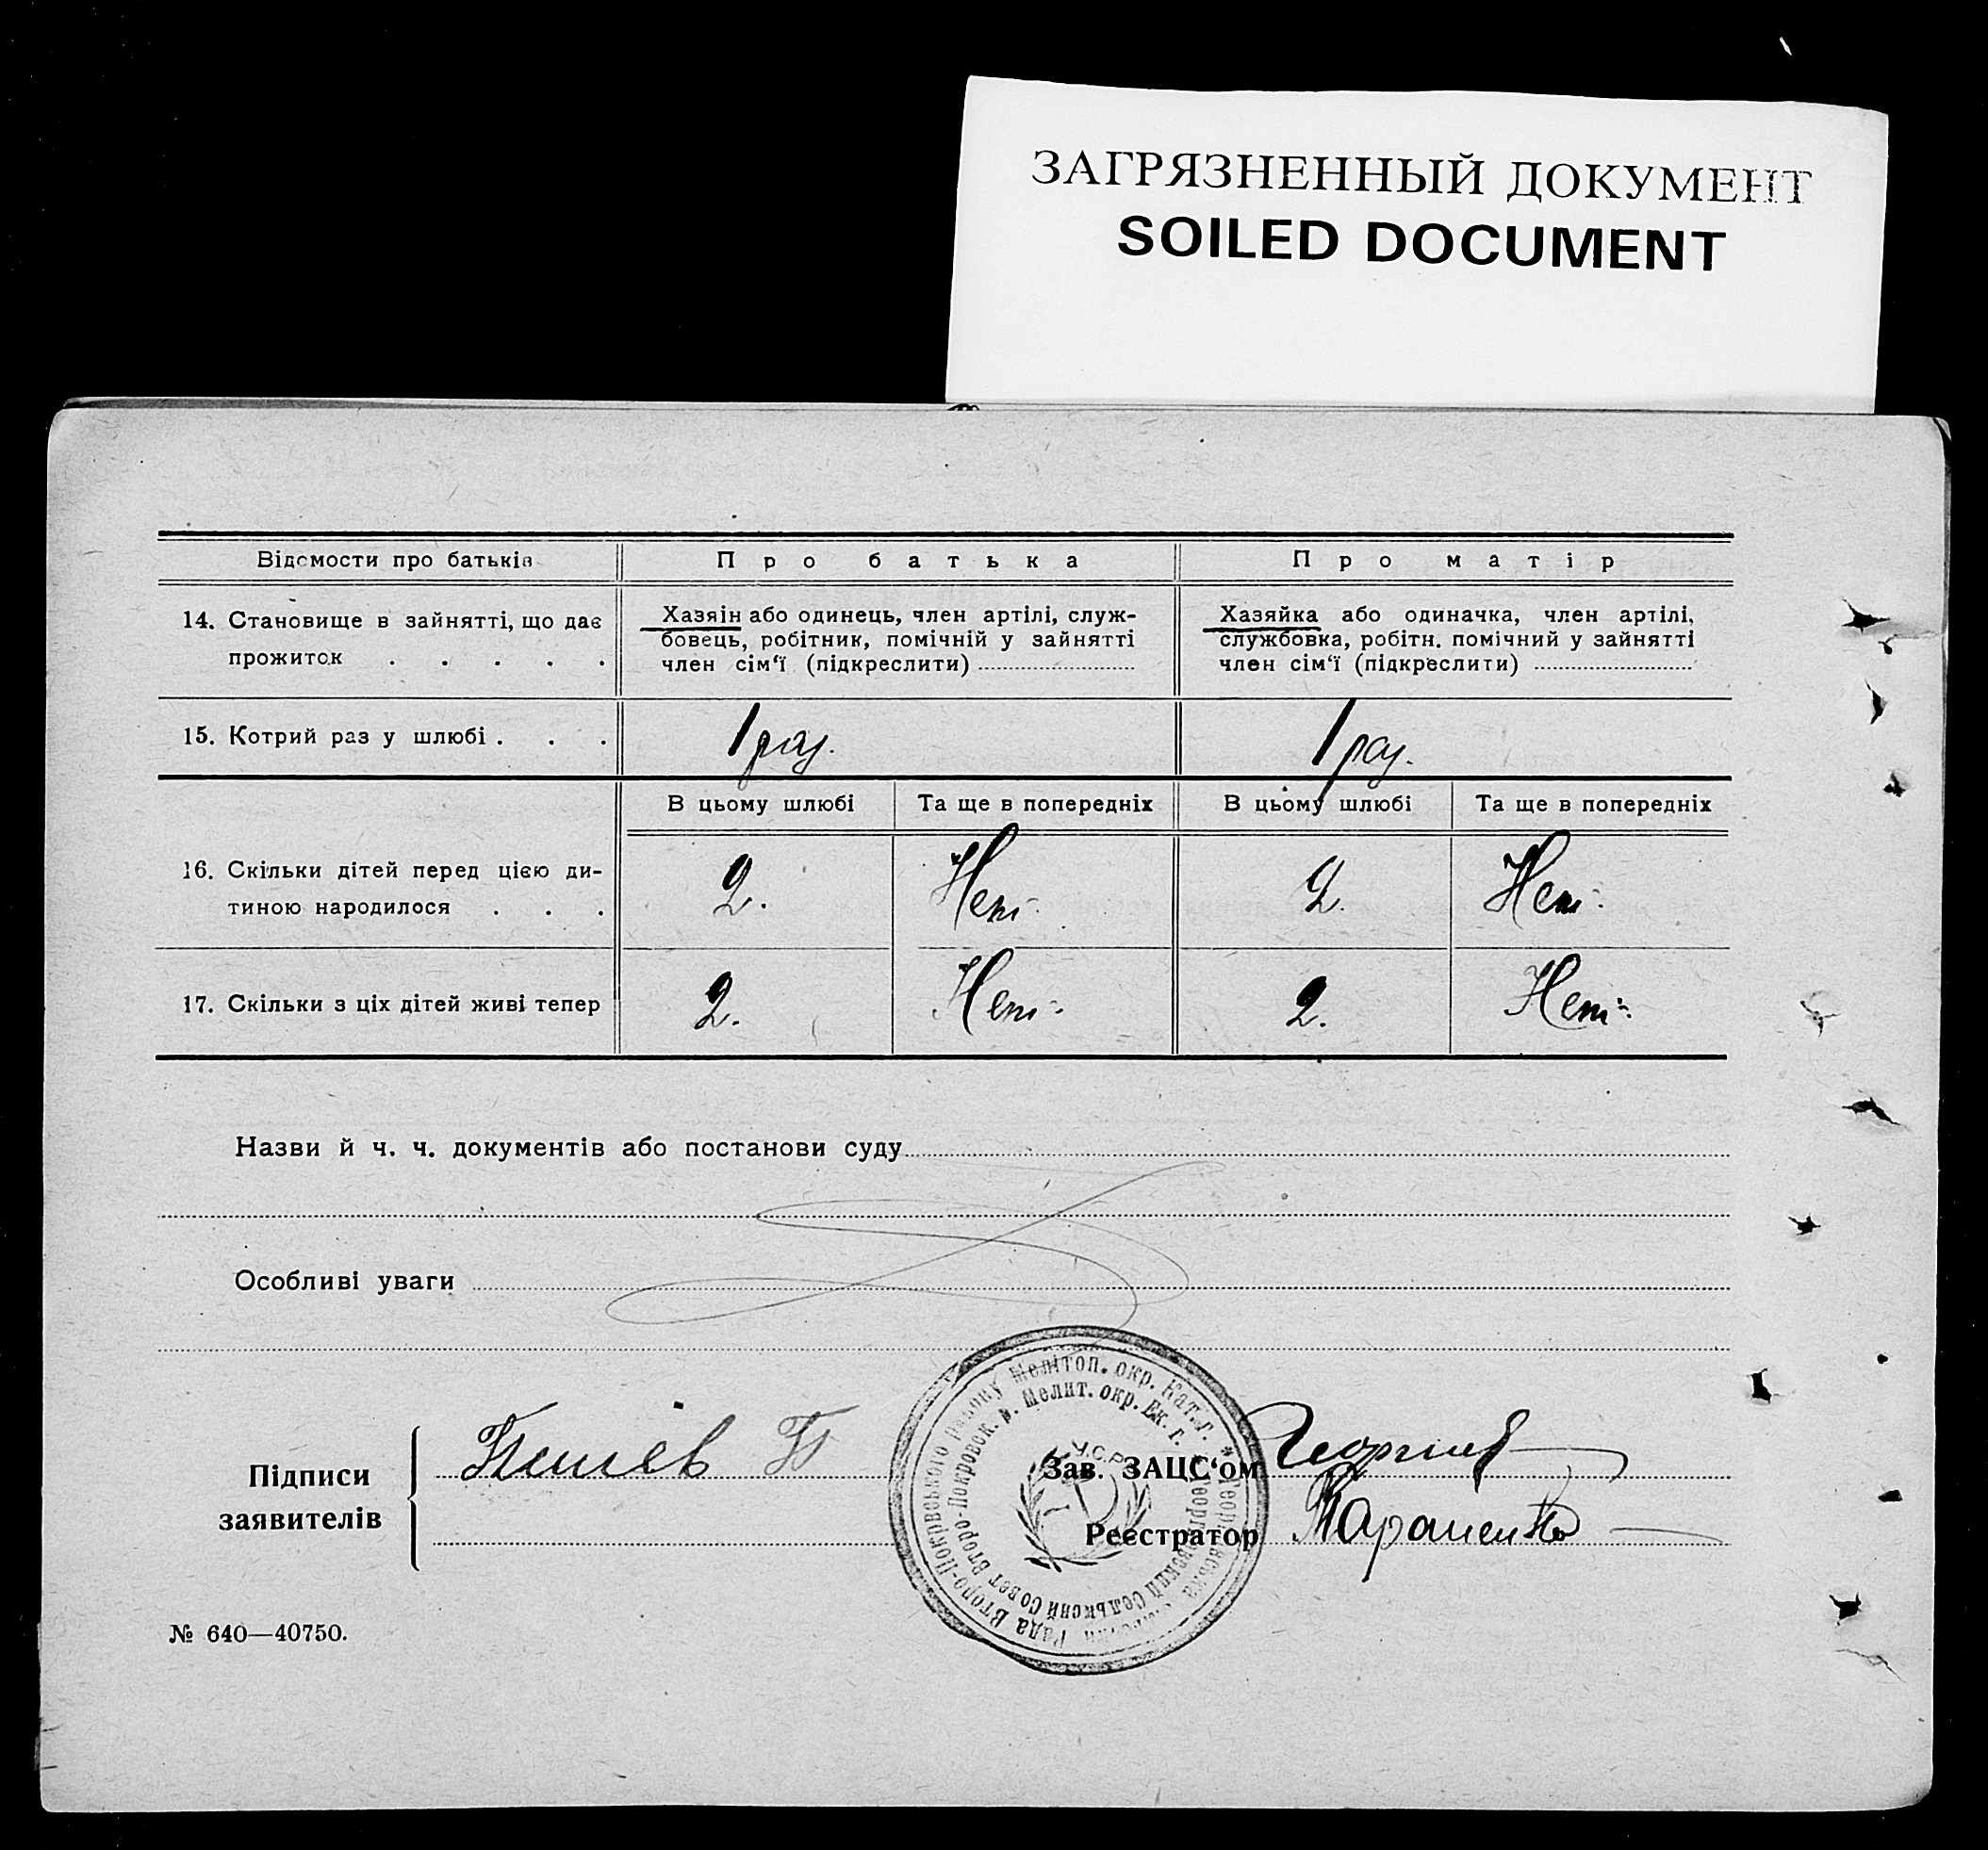 ЗАГРЯЗНЕННЫЙ ДОКУМЕНТ
SOILED DOCUMENT
Відомости про батьків
Про батька
Про матір
14. Становище в зайнятті, що дає
прожиток . . . . .
Хазяін або одинець, член артілі, служ-
бовець, робітник, помічній у зайнятті
член сім‘ї (підкреслити)
Хазяйка або одиначка, член артілі,
службовка, робітн. помічний у зайнятті
член сім‘ї (підкреслити)
15. Котрий раз у шлюбі . . .
1 раз.
1 раз.
В цьому шлюбі
Та ще в попередніх
В цьому шлюбі
Та ще в попередніх
16. Скільки дітей перед цією ди-
тиною народилося . . .
2.
Нет
2.
Нет
17. Скільки з ціх дітей живі тепер
2.
Нет
2.
Нет
Назви й ч. ч. документів або постанови суду
Особливі уваги
Підписи
заявителів
Зав. ЗАЦС‘ом
Реєстратор Тараненко
Рада Второ-Покрвського району Мелітоп. окр. Кат. г.
Сельский Совет Второ-Покровск. р. Мелит. окр. Ек. г.
У.С.Р.
№ 640—40750.